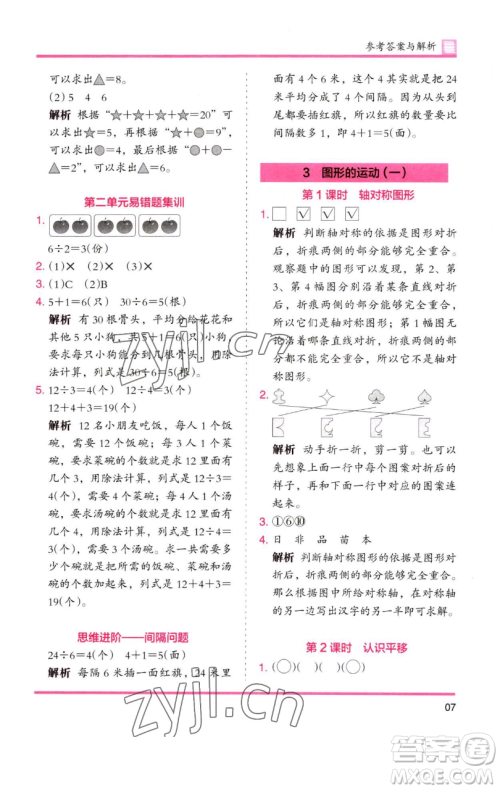 参考答案与解析
可以求出△=8。
(2)5 4 6
解析 根据“☆+☆+☆+☆=20”可
以求出☆=5,最后根据“☆+○=9”,
可以求出○=4。最后根据“○+○-☆=
△”,可以求出△=6。
第二单元易错题集训
1.
6÷2=3(份)
2. (1)× (2)×
3. (1)C (2)B
4. 5+1=6(只) 30÷6=5(根)
解析 有30根骨头,平均分给花花和
其他5只小狗,一共有5+1=6(只)小狗,
要求每只小狗能分到几根骨头,用除
法计算,列式是30÷6=5(根)。
5. 12÷3=4(个) 12÷4=3(个)
12+4+3=19(个)
解析 12名小朋友吃饭,每人1个饭
碗,需要12个饭碗;每3人1个菜
碗,要求菜碗的个数就是求12里面有
几个3,用除法计算,列式是12÷3=
4(个),需要4个菜碗;每4人1个汤
碗,要求汤碗的个数就是求12里面有
几个4,用除法计算,列式是12÷4=
3(个),需要3个汤碗。要求一共需要
多少个碗,就是把饭碗、菜碗和汤碗的
个数加起来,列式是12+4+3=
19(个)。
思维进阶——间隔问题
24÷6=4(个) 4+1=5(面)
解析 每隔6米插一面红旗,24米里
面有4个6米,这4个其实就是把24
米平均分成了4个间隔。因为从头到
尾都要插红旗,所以红旗的数量要比
间隔数多1,即4+1=5(面)。
3 图形的运动(一)
第1课时 轴对称图形
1. □ ☑ ☑
解析 判断轴对称图形的依据是图形对
折后,折痕两侧的部分能够完全重合。
观察题中的图形可以发现,第2、第
3、第4幅图分别沿着某条直线对折
后,折痕两侧的部分能够完全重合,所
以它们是轴对称图形。第1幅图无
论沿哪条直线对折,折痕两侧的部分
都不能完全重合,所以它不是轴对
称图形。
2.
解析 动手折一折,剪一剪。也可以
先想象出上面的每个图案对折后的
样子,再与下面对应的图案连
起来。
3. ①⑥⑩
4. 日 非 品 苗 本
解析 判断轴对称图形的依据是图形对
折后,折痕两侧的部分能够完全重合。
因此,沿着对称轴,对称轴左边的部
分写出汉字的另一半即可。
第2课时 认识平移
1. (○)( )( )(○)
07
zyjl.cn
zyjl.cn
答案圈
MXQE.COM